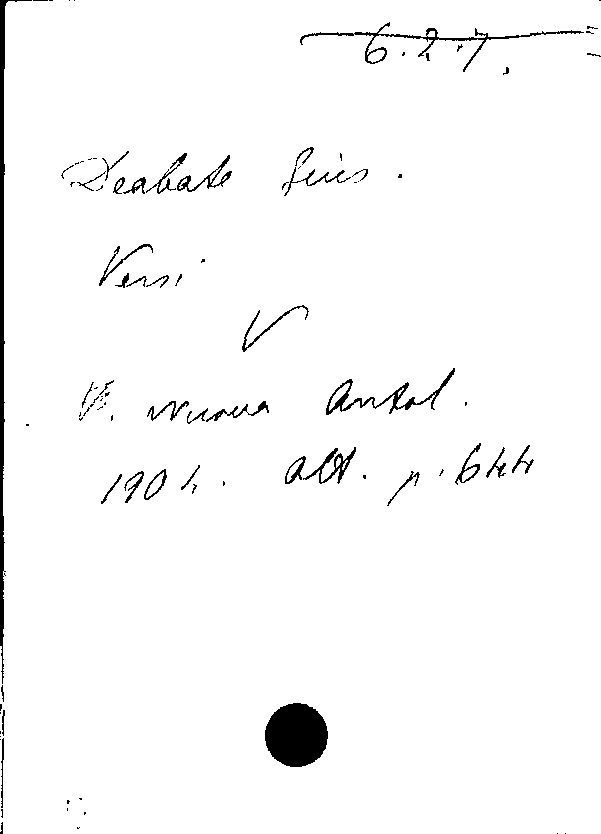 6.2.7.
Deabate Gius.
Versi
V
V. nuova Antol.
1904. Ott. p. 644